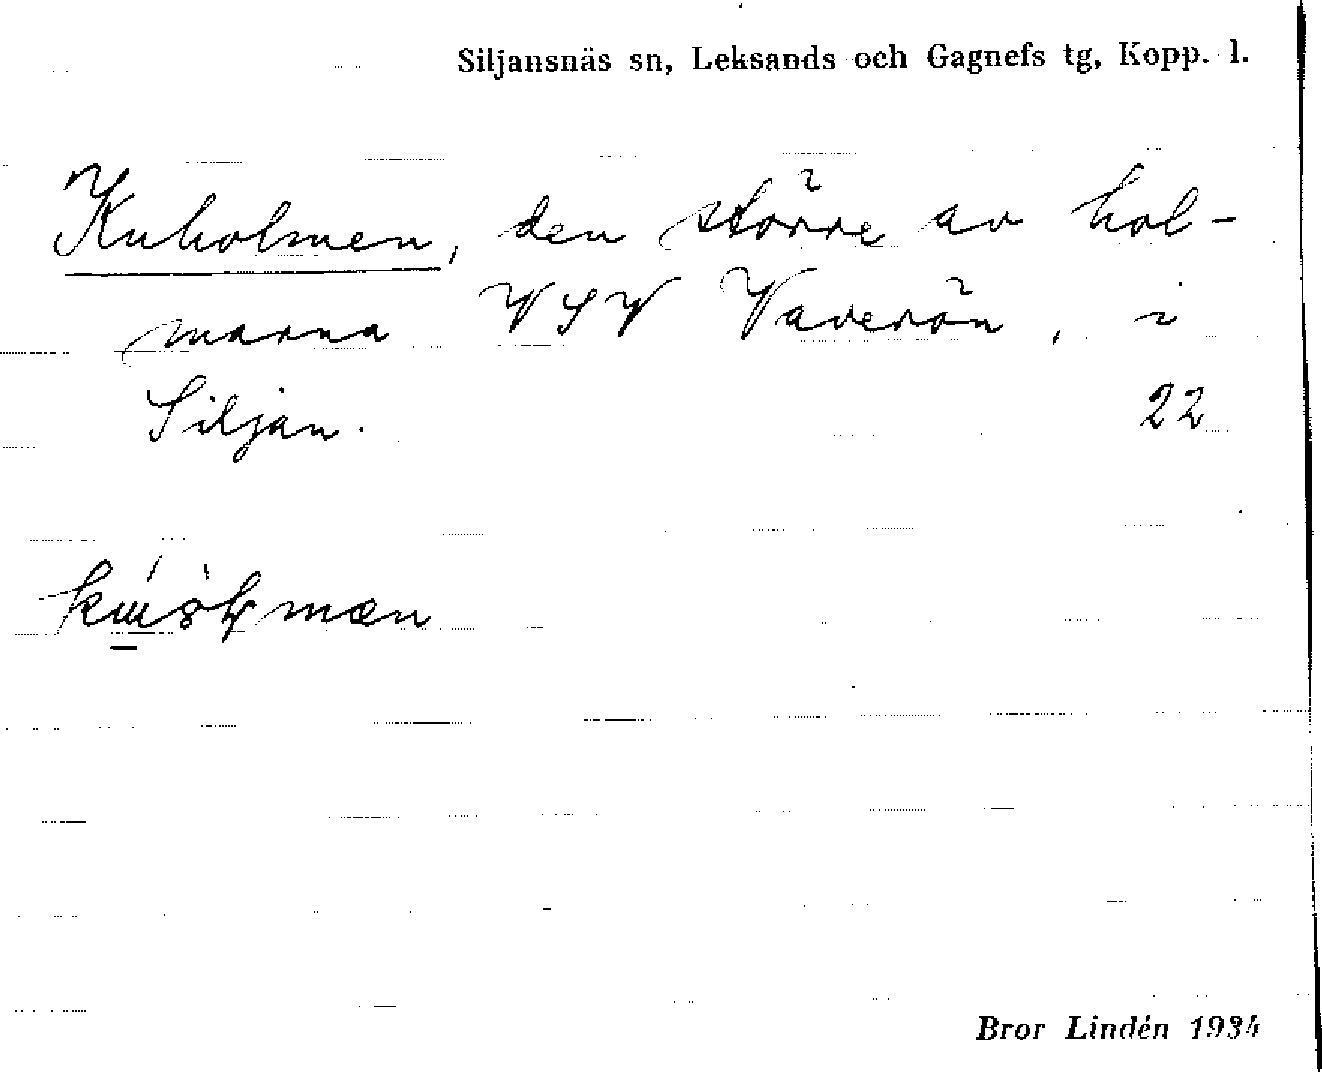 Siljansnäs sn, Leksands och Gagnefs tg, Kopp. l.
Kuholmen, den större av hol-
marna VSV Vaverön, i
Siljan. 22
Bror Lindén 1934